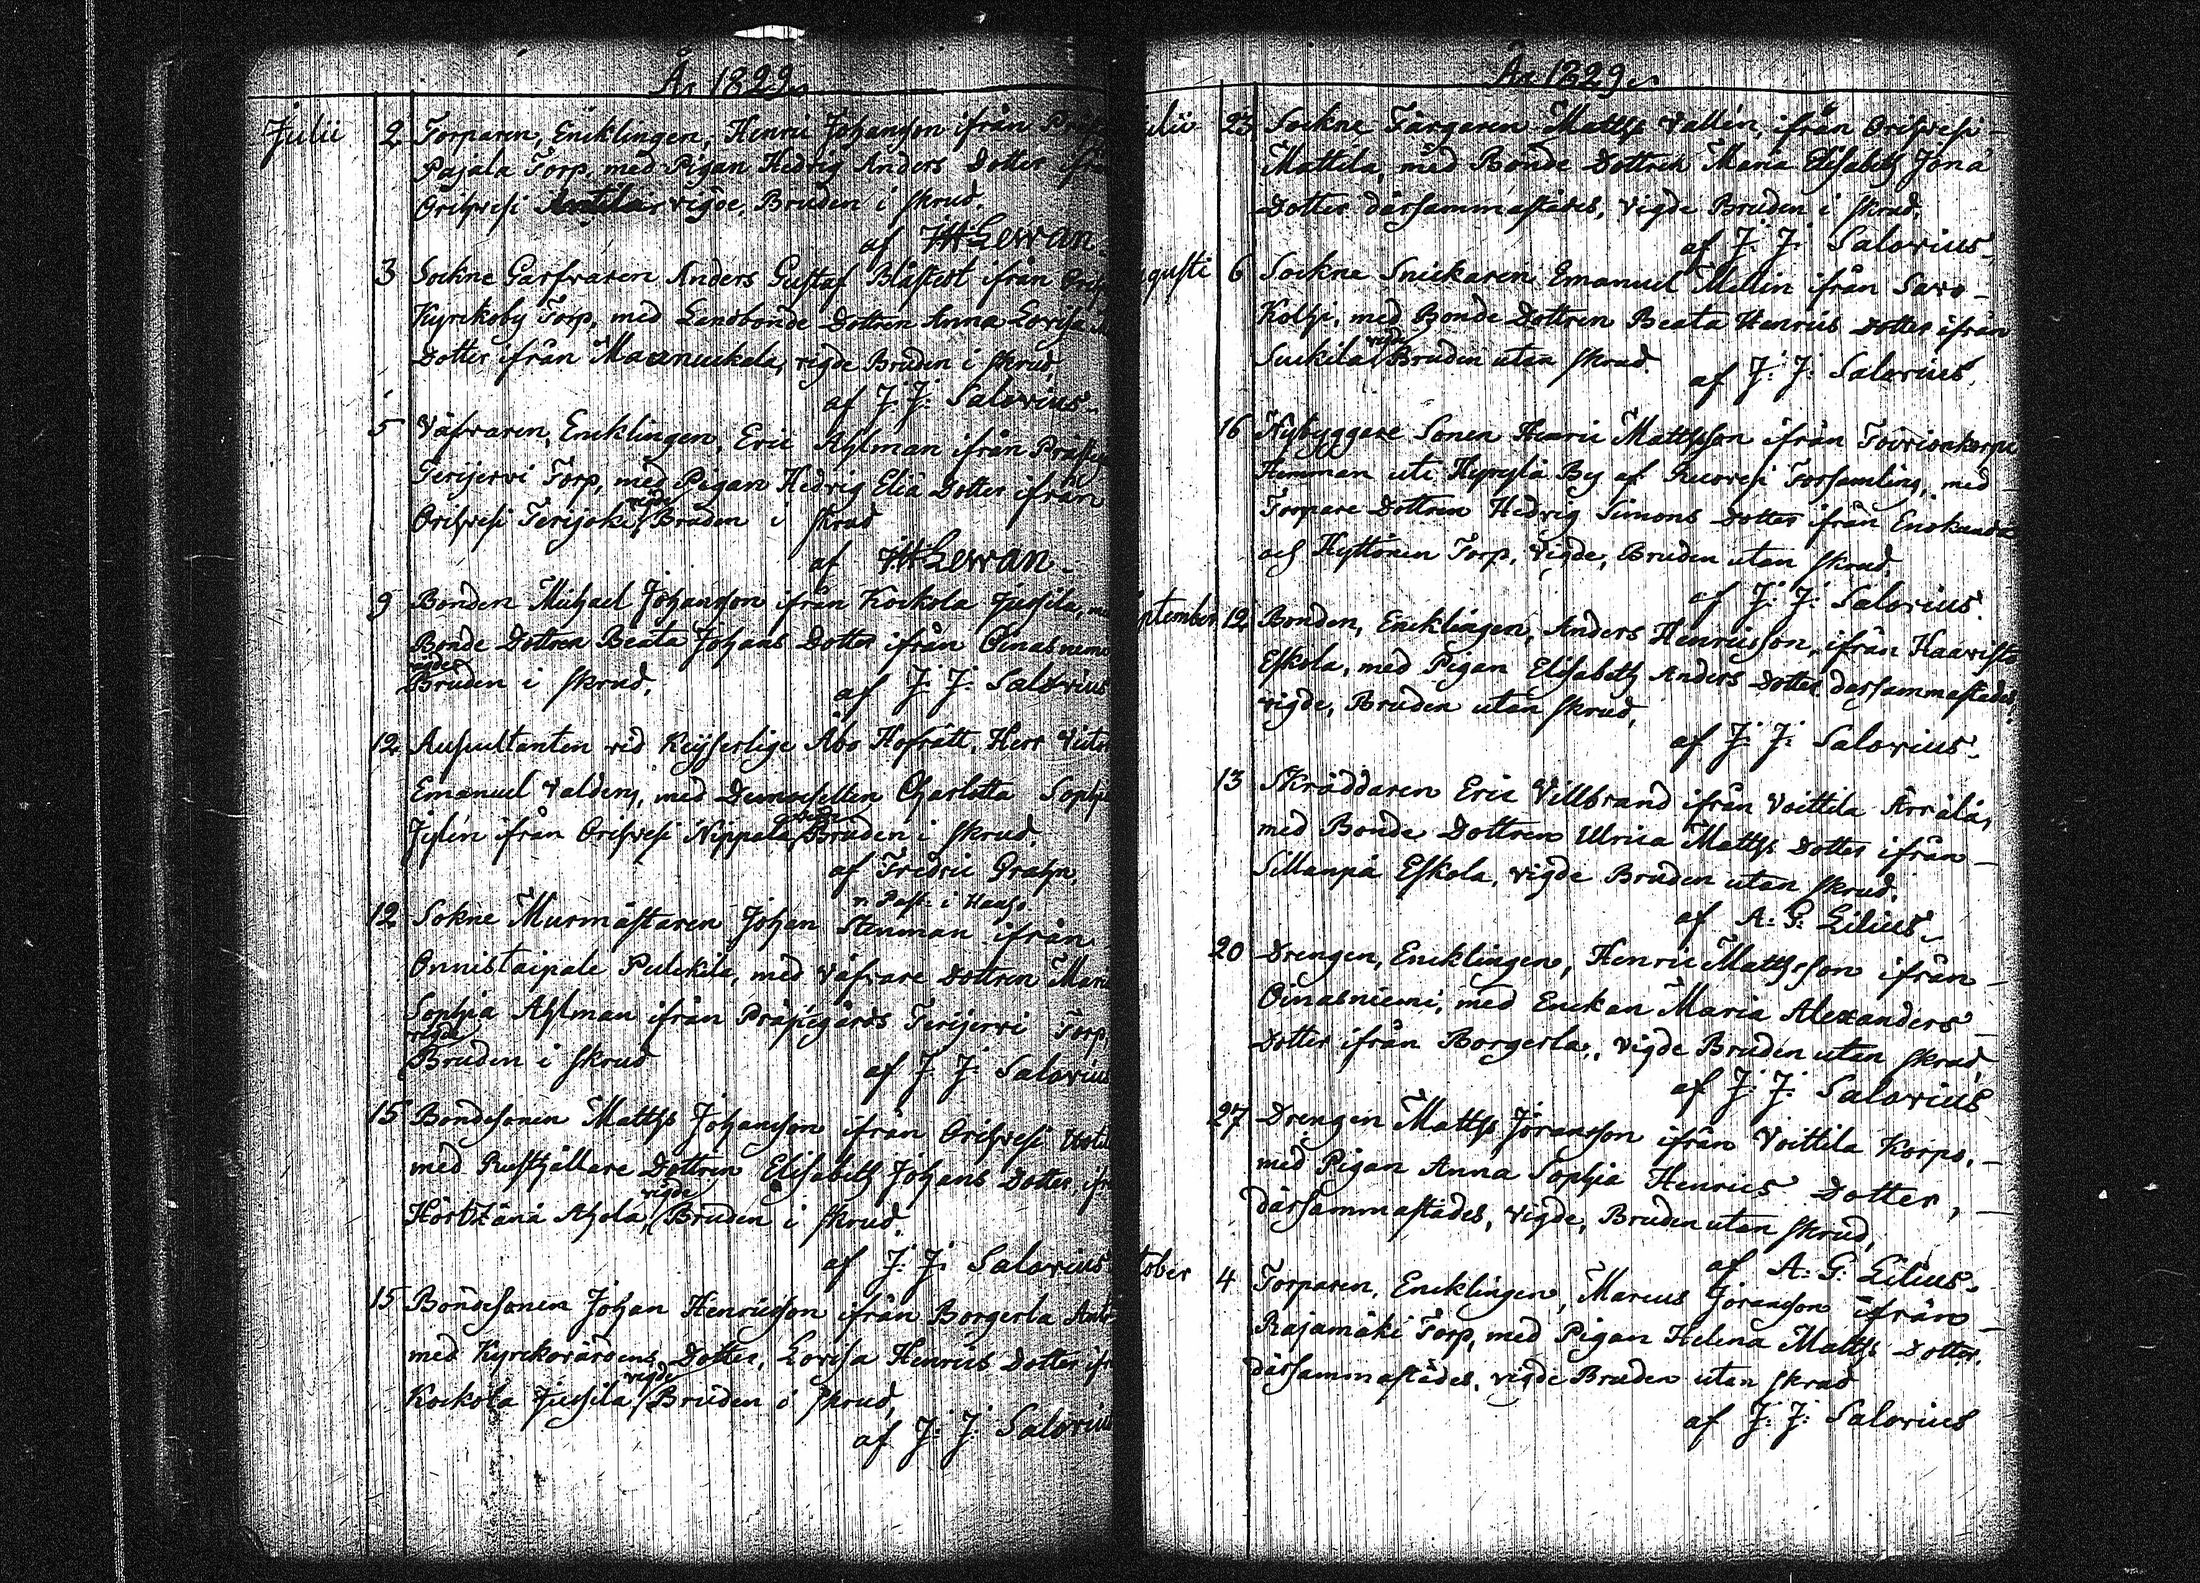 År 1829.
Julii 2 Torparen, Encklingen, Henric Johansson ifrån
Pajala Torp, med Pigan Hedvig Anders Dotter ifrån
Orihvesi Anttila, vigde, Bruden i skrud.
af JH Lewan.
3 Sockne Garfvaren Anders Gustaf Blåfield ifrån
Kyrckoby Torp, med Landbonde Dottren Anna Lovisa
Dotter ifrån Maanuckela, vigde Bruden i skrud,
af J: J: Salovius.
5 Väfvaren, Encklingen, Eric Ahlman ifrån
Terijervi Torp, med Pigan Hedvig Elia Dotter ifrån
Orihvesi Terijoki, vigde Bruden i skrud
af JH Lewan.
9 Bonden Michael Johansson ifrån Kockola Jussila,
Bonde Dottren Beata Johans Dotter ifrån
vigde
Bruden i skrud,
af J: J: Salovius
12 Auscultanten vid Keijserlige Åbo Hofrätt, Herr
Emanuel Valdens, med Demoisellen Charlotta Sophia
ifrån Orihvesi Nippala, vigde Bruden i skrud,
af Fredric Grahn,
v. Past. i
12 Sokne Murmästaren Johan Stenman ifrån
Onnistaipale Pulckila, med Väfvare Dottren
Sophia Ahlman ifrån Prästgårds Terijervi Torp,
vigde
Bruden i skrud
af J: J: Salovius
15 Bondesonen Matths Johansson ifrån Orihvesi
med Rusthållare Dottren Elisabeth Johans Dotter,
Ahola, vigde Bruden i skrud.
af J: J: Salovius
15 Bondesonen Johan Henricsson ifrån Borgerla
med Kyrckovärdens Dotter, Lovisa Henrics Dotter
Kockola Jussila, vigde Bruden i skrud,
af J: J: Salovius
År 1829.
23 Sockne Färgaren Matths Vallin, ifrån Orihvesi
Mattila, med Bonde Dottren Maria Elisabeth Jona
Dotter därsammastädes, vigde Bruden i skrud,
af J: J: Salovius.
6 Sockne Snickaren Emanuel Mellin ifrån Savo-
Kolhi, med Bonde Dottren Beata Henrics Dotter ifrån
Suckila, vigde Bruden utan skrud.
af J: J: Salovius.
16 Nybyggare Sonen Henric Mattsson ifrån
Hemman uti Hyrylä By af Ruovesi Församling, med
Torpare Dottren Hedvig Simons Dotter ifrån
och Hyttönen Torp, vigde, Bruden utan skrud.
af J: J: Salovius.
12 Bonden, Encklingen, Anders Henricsson, ifrån Haavisto
Eskola, med Pigan Elisabeth Anders Dotter därsammastädes,
vigde, Bruden utan skrud,
af J: J: Salovius.
13 Skräddaren Eric Villbrand ifrån Voittila Ärrälä,
med Bonde Dottren Ulrica Matths Dotter ifrån
Sillanpä Eskola, vigde Bruden utan skrud.
af A: G: Lilius.
20 Drengen, Encklingen, Henric Mattsson ifrån
Oinasniemi, med Enckan Maria Alexanders
Dotter ifrån Borgerla, vigde Bruden utan skrud,
af J: J: Salovius
27 Drengen Matths Jöransson ifrån Voittila Korpo,
med Pigan Anna Sophia Henrics Dotter,
därsammastädes, vigde, Bruden utan skrud,
af A: G: Lilius.
4 Torparen, Encklingen, Marcus Jöransson ifrån
Rajamäki Torp, med Pigan Helena Matths Dotter,
därsammastädes, vigde Bruden utan skrud
af J: J: Salovius